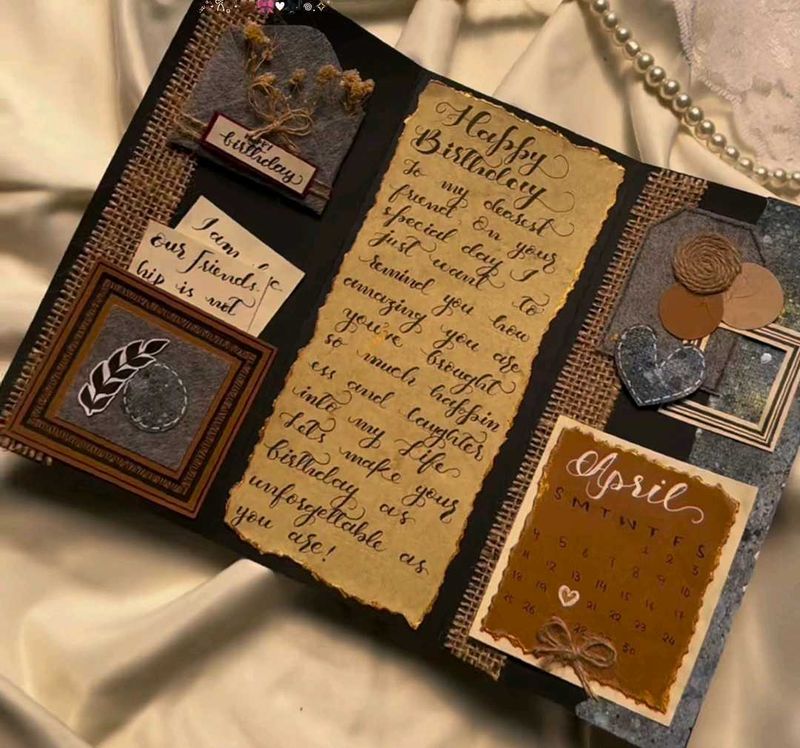 HAPPY
birthday
I am
our friends
hip is not
Happy
Birthday
To my dearest
friend on your
special day I
just want to
remind you how
amazing you are
you've brought
so much happin
ess and laughter
into my life
Let's make your
birthday as
unforgettable as
you are!
April
S M T W T F S
1 2 3
4 5 6 7 8 9 10
11 12 13 14 15 16 17
18 19 21 22 23 24
25 26 28 29 30